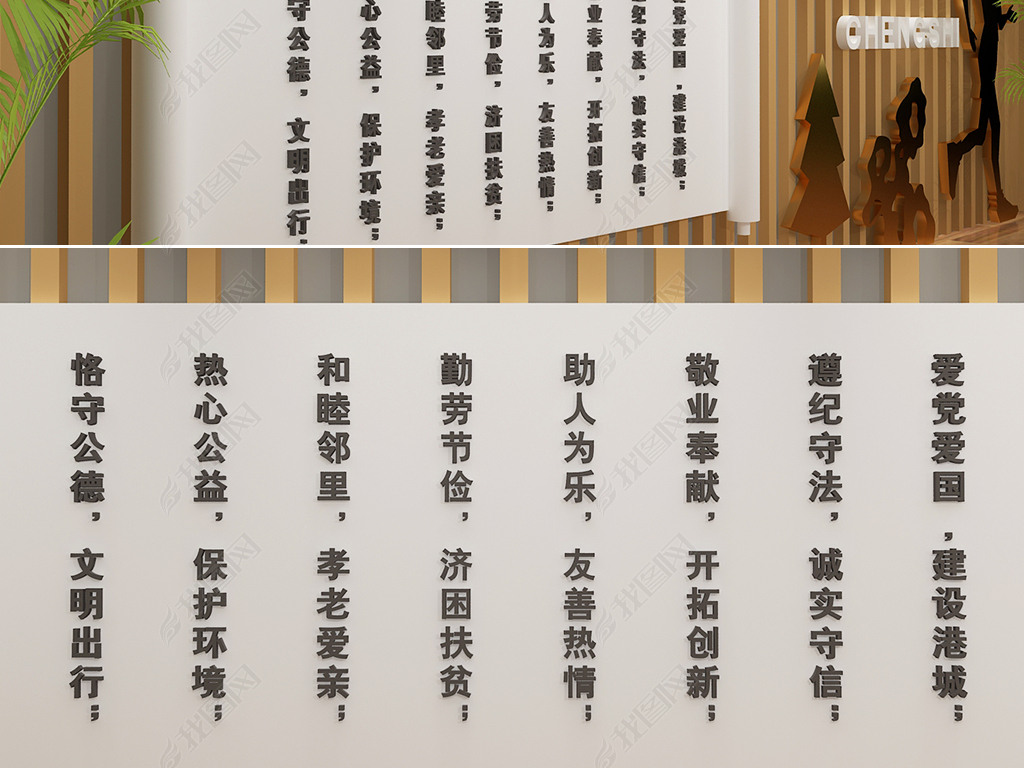 守公德，文明出行；
心公益，保护环境；
睦邻里，孝老爱亲；
劳节俭，济困扶贫；
人为乐，友善热情；
业奉献，开拓创新；
纪守法，诚实守信；
党爱国，建设港城；
CHENGSHI
爱党爱国，建设港城；
遵纪守法，诚实守信；
敬业奉献，开拓创新；
助人为乐，友善热情；
勤劳节俭，济困扶贫；
和睦邻里，孝老爱亲；
热心公益，保护环境；
恪守公德，文明出行；